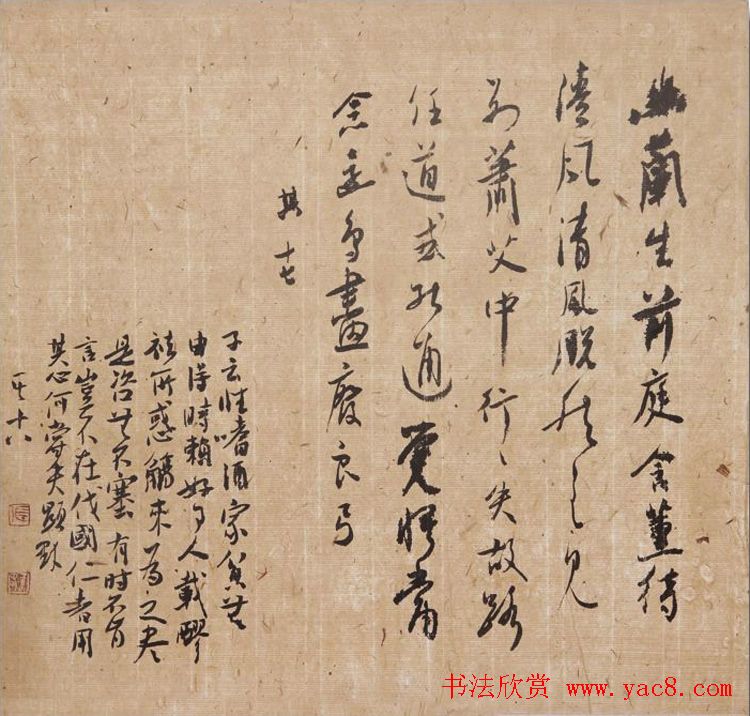 幽蘭生前庭含薰待
清風清風脫然至見
別蕭艾中行〻失故路
任道或能通覺悟當
念還鳥盡廢良弓
其十七
子云性嗜酒家貧無
由得時賴好事人載醪
祛所惑觴來為之盡
是咨無不塞有时不肯
言豈不在伐國仁者用
其心何嘗失顯默
其十八
书法欣赏 www.yac8.com